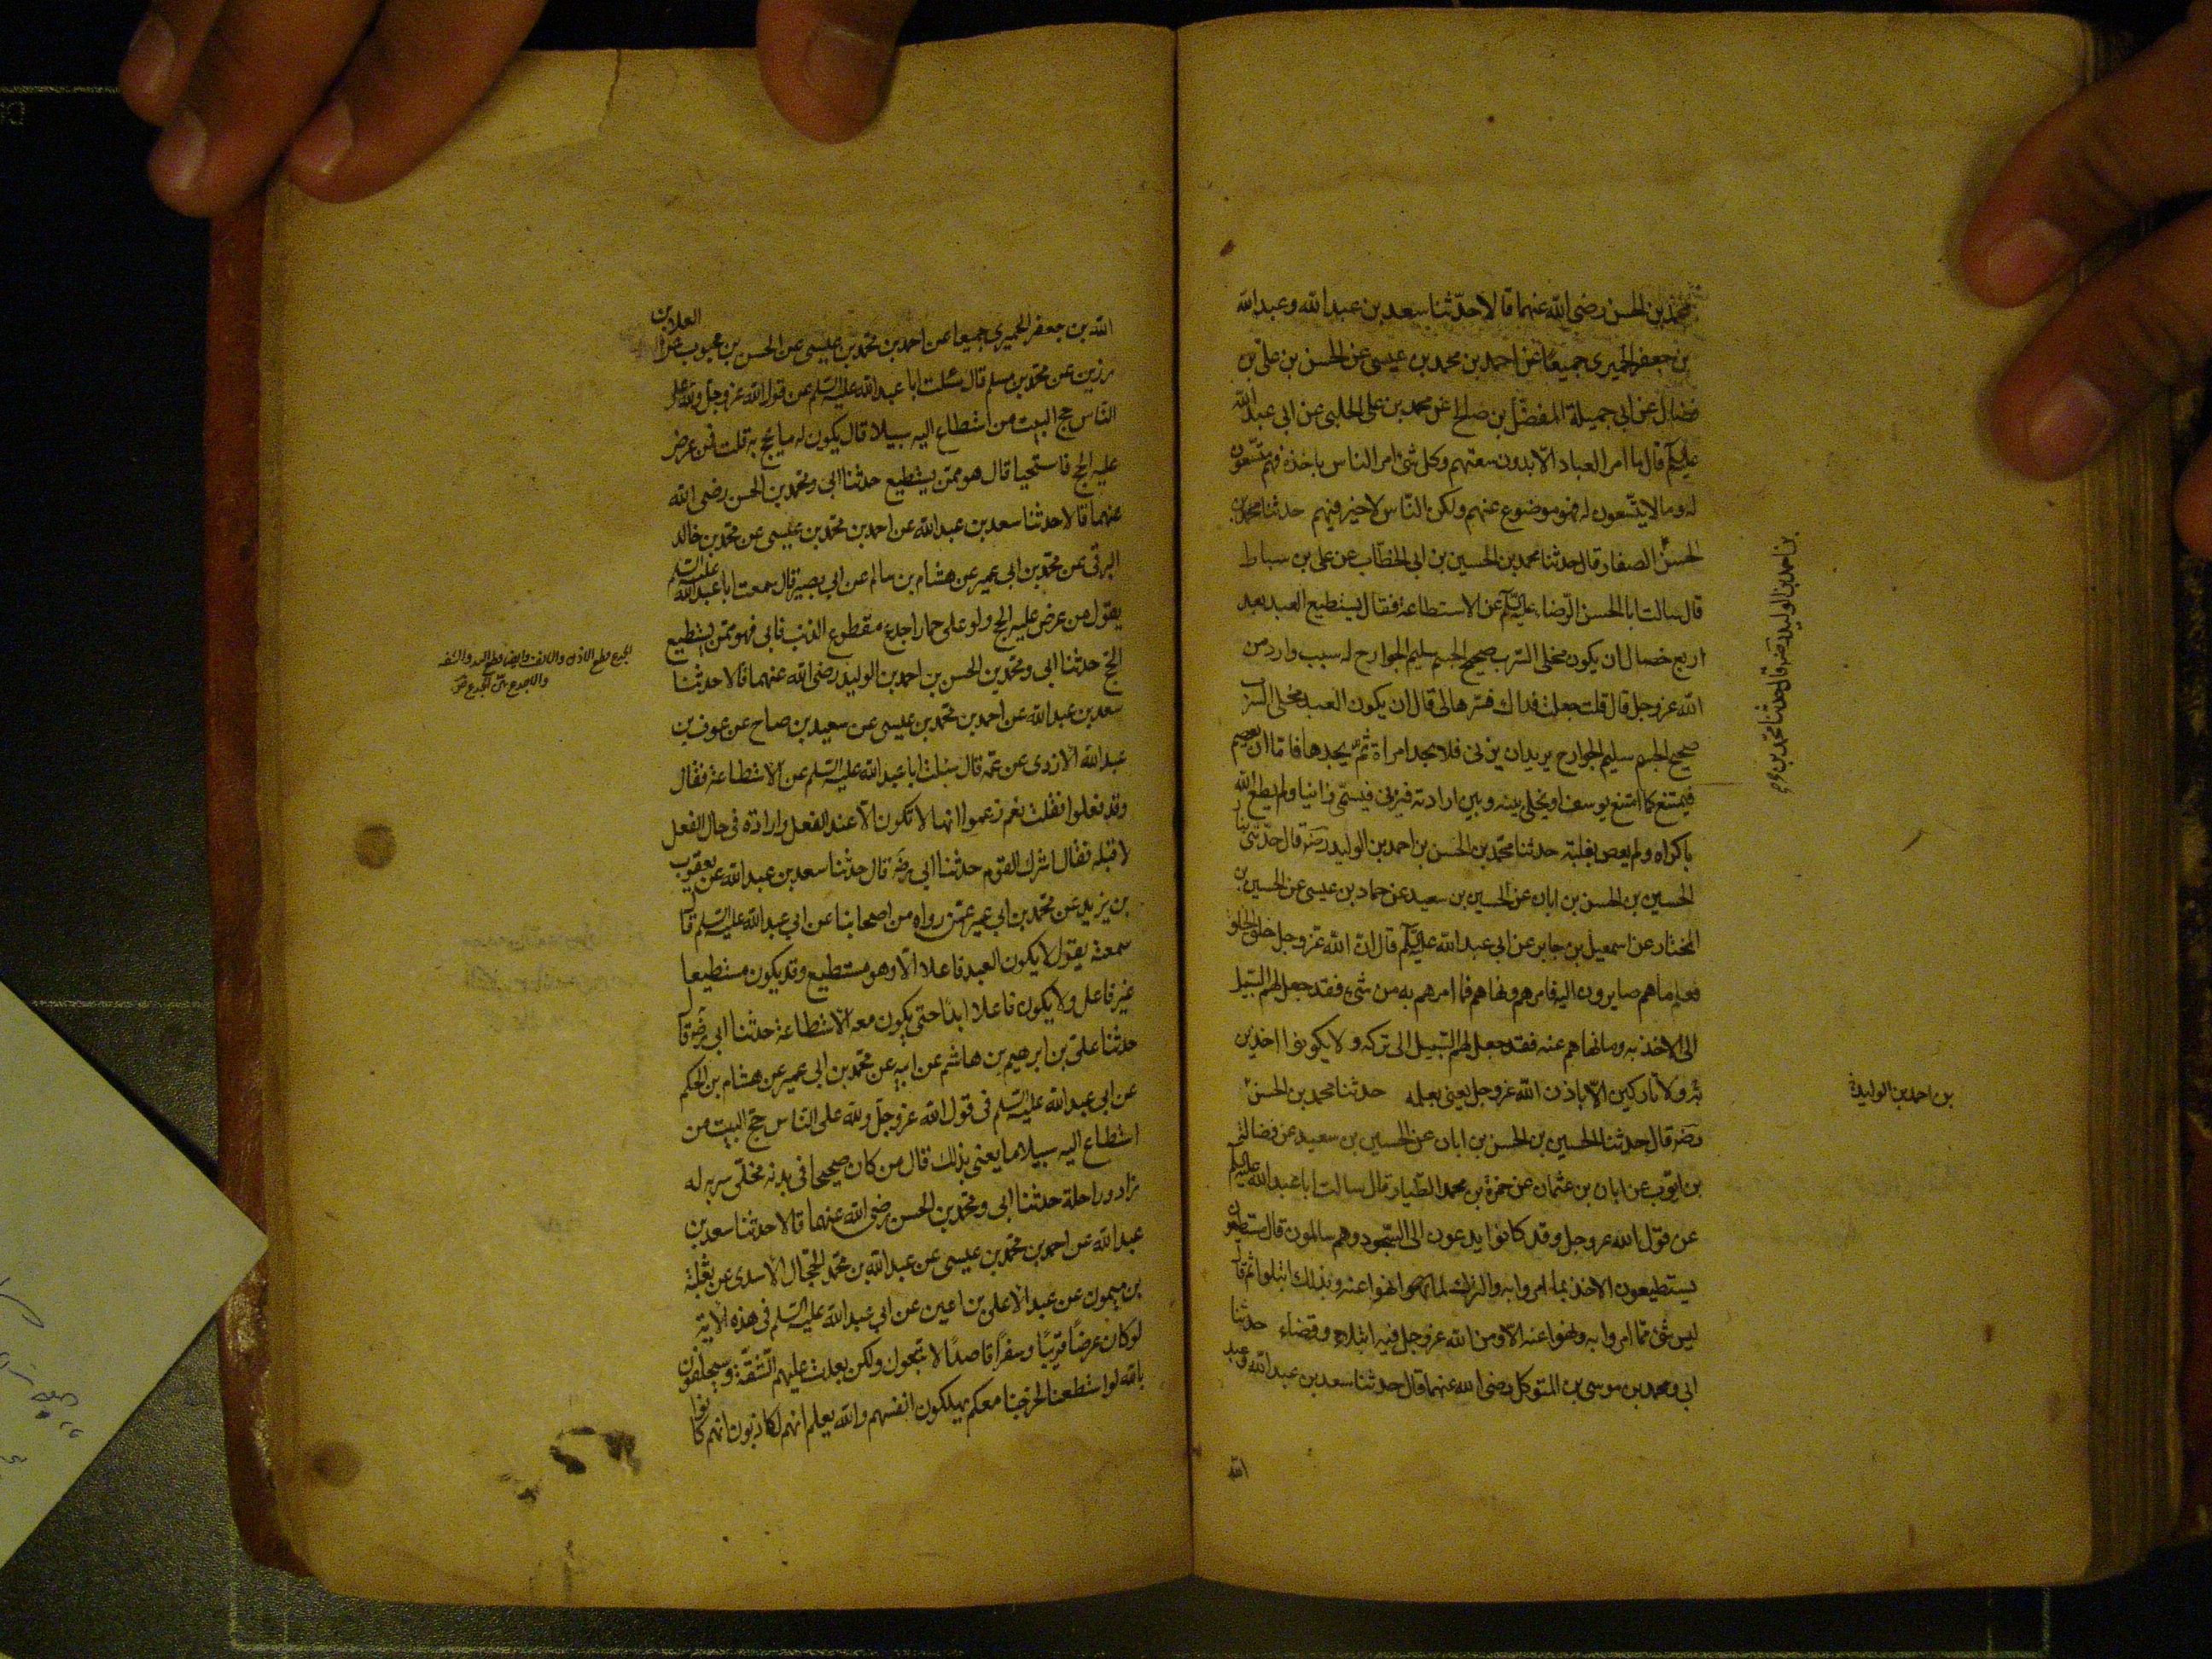 محمد بن الحسن رضى الله عنهما قالا حدّثنا سعد بن عبد الله وعبد الله
بن جعفر الحميرى جميعًا عن احمد بن محمد بن عيسى عن الحسن بن على بن
فضال عن ابى جميلة المفضّل بن صالح عن محمد بن على الحلبى عن ابى عبد الله
عليه السلم قال ما امر العباد الّا بدون سعتهم وكل شئ امر الناس باخذه فهم متّسعون
له وما لا يتّسعون له فهو موضوع عنهم ولكن النّاس لا خير فيهم حدثنا محمد بن
الحسن الصفار قال حدثنا محمد بن الحسين بن ابى الخطّاب عن على بن سباط
قال سالت ابا الحسن الرّضا عليه السلم عن الاستطاعة فقال يستطيع العبد بعد
اربع خصال ان يكون مخلى السّرب صحيح الجسم سليم الجوارح له سبب وارد من
الله عز وجل قال قلت جعلت فداك فسّرها لى قال ان يكون العبد مخلى السّرب
صحيح الجسم سليم الجوارح يريد ان يزنى فلا يجد امراة ثمّ يجدها فاما ان يعصم
فيمتنع كما امتنع يوسف او يخلى بينه وبين ارادته فيزنى فيسمّى زانيا ولم يطع الله
باكراه ولم يعص بغلبة حدثنا محمّد بن الحسن بن احمد بن الوليد رضه قال حدّثنى
الحسين بن الحسن بن ابان عن الحسين بن سعيد عن حماد بن عيسى عن الحسين بن
المختار عن اسمعيل بن جابر عن ابى عبد الله عليه السلم قال انّ الله عزّ وجل خلق الخلق
فعلم ما هم صايرون اليه فامرهم ونهاهم فما امرهم به من شئ فقد جعل لهم السّبيل
الى الاخذ به وما نهاهم عنه فقد جعل لهم السّبيل الى تركه ولا يكونوا اخذين
ولا تاركين الّا باذن الله عز وجل يعنى بعلمه حدثنا محمد بن الحسن
رضه قال حدثنا الحسين بن الحسن بن ابان عن الحسين بن سعيد عن فضالة
بن ايّوب عن ابان بن عثمان عن حمزة بن محمد الطّيار قال سالت ابا عبد الله عليه السلم
عن قول الله عز وجل وقد كانوا يدعون الى السّجود وهم سالمون قال مستطيعون
يستطيعون الاخذ بما امروا به والترك لما نهوا عنه وبذلك ابتلوا ثم قال
ليس شئ ممّا امروا به ونهوا عنه الّا ومن الله عز وجل فيه ابتلاء وقضاء حدثنا
ابى ومحمد بن موسى بن المتوكل رضى الله عنهما قال حدثنا سعد بن عبد الله وعبد
الله
بن احمد بن الوليد رضه قال حدثنا محمّد بن
بن احمد بن الوليد
الله بن جعفر الحميرى جميعا عن احمد بن محمّد بن عيسى عن الحسن بن محبوب عن العلا بن
رزين عن محمّد بن مسلم قال سئلت ابا عبد الله عليه السّلم عن قول الله عز وجلّ ولله على
النّاس حج البيت من استطاع اليه سبيلا قال يكون له ما يحج به قلت فمن عرض
عليه الحج فاستحيا قال هو ممّن يستطيع حدثنا ابى ومحمّد بن الحسن رضى الله
عنهما قالا حدثنا سعد بن عبد الله عن احمد بن محمّد بن عيسى عن محمّد بن خالد
البرقى عن محمّد بن ابى عمير عن هشام بن سالم عن ابى بصير قال سمعت ابا عبد الله عليه السّلم
يقول من عرض عليه الحج ولو على حمار اجدع مقطوع الذنب فابى فهو ممّن يستطيع
الحجّ حدثنا ابى ومحمّد بن الحسن بن احمد بن الوليد رضى الله عنهما قالا حدثنا
سعد بن عبد الله عن احمد بن محمّد بن عيسى عن سعيد بن صاح عن عوف بن
عبد الله الازدى عن عمّه قال سئلت ابا عبد الله عليه السّلم عن الاستطاعة فقال
وقد فعلوا فقلت نعم زعموا انها لا تكون الّا عند الفعل وارادة فى حال الفعل
لا قبله فقال اشرك القوم حدثنا ابى رضه قال حدثنا سعد بن عبد الله عن يعقوب
بن يزيد عن محمّد بن ابى عمير عمّن رواه من اصحابنا عن ابى عبد الله عليه السّلم قال
سمعته يقول لا يكون العبد فاعلا الّا وهو مستطيع وقد يكون مستطيعا
غير فاعل ولا يكون فاعلا ابدًا حتى يكون معه الاستطاعة حدثنا ابى رضه قال
حدثنا علىّ بن ابرهيم بن هاشم عن ابيه عن محمّد بن ابى عمير عن هشام بن الحكم
عن ابى عبد الله عليه السّلم فى قول الله عز وجلّ ولله على النّاس حجّ البيت من
استطاع اليه سبيلا ما يعنى بذلك قال من كان صحيحا فى بدنه مخلّى سربه له
زاد وراحلة حدثنا ابى ومحمّد بن الحسن رضى الله عنهما قالا حدثنا سعد بن
عبد الله عن احمد بن محمّد بن عيسى عن عبد الله بن محمّد الحجّال الاسدى عن ثعلبة
بن ميمون عن عبد الاعلى بن اعين عن ابى عبد الله عليه السّلم فى هذه الاية
لو كان عرضًا قريبًا وسفرًا قاصدًا لاتبعوك ولكن بعدت عليهم الشّقّة وسيحلفون
بالله لو استطعنا لخرجنا معكم يهلكون انفسهم والله يعلم انهم لكاذبون انهم كانوا
الجدع قطع الاذن والانف وايضا قطع اليد والشفه
والاجدع بيّن الجدع